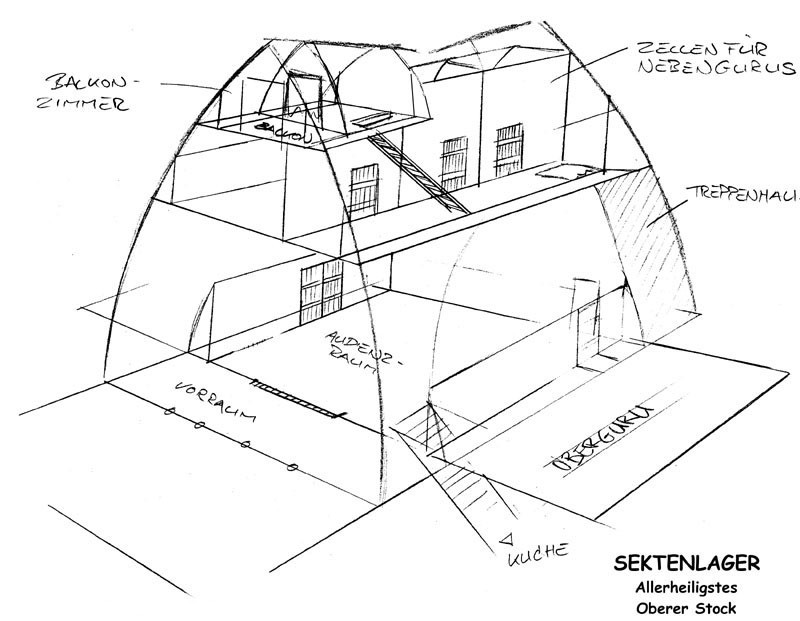 BALKON-
ZIMMER
ZELLEN FÜR
NEBENGURUS
BALKON
TREPPENHAUS
AUDIENZ-
RAUM
VORRAUM
OBERGURU
KÜCHE
SEKTENLAGER
Allerheiligstes
Oberer Stock